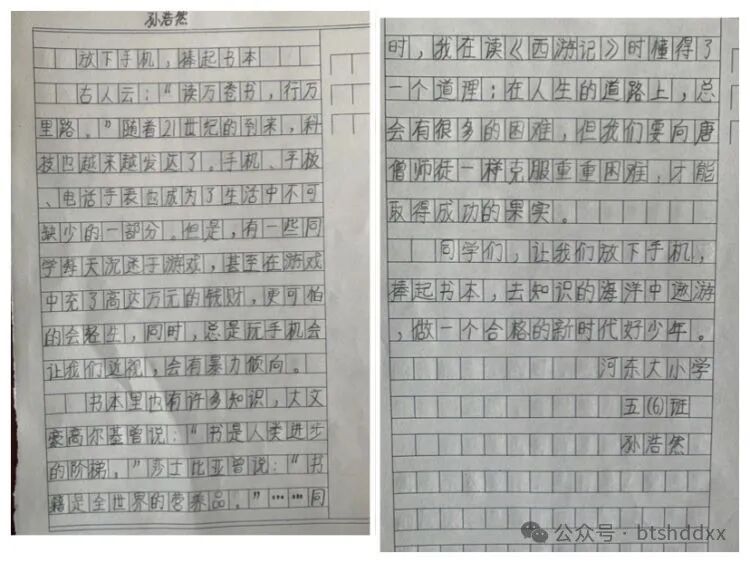 孙浩然
放下手机，捧起书本
古人云：“读万卷书，行万
里路。”随着21世纪的到来，科
技也越来越发达了。手机、平板
、电话手表也成为了生活中不可
缺少的一部分。但是，有一些同
学每天沉迷于游戏，甚至在游戏
中充了高达万元的钱财，更可怕
的会轻生，同时，总是玩手机会
让我们近视，会有暴力倾向。
书本里也有许多知识，大文
豪高尔基曾说：“书是人类进步
的阶梯。”莎士比亚曾说：“书
籍是全世界的营养品。”……同
时，我在读《西游记》时懂得了
一个道理：在人生的道路上，总
会有很多的困难，但我们要向唐
僧师徒一样克服重重困难，才能
取得成功的果实。
同学们，让我们放下手机，
捧起书本，去知识的海洋中遨游
，做一个合格的新时代好少年。
河东大小学
五(6)班
孙浩然
公众号·btshddxx